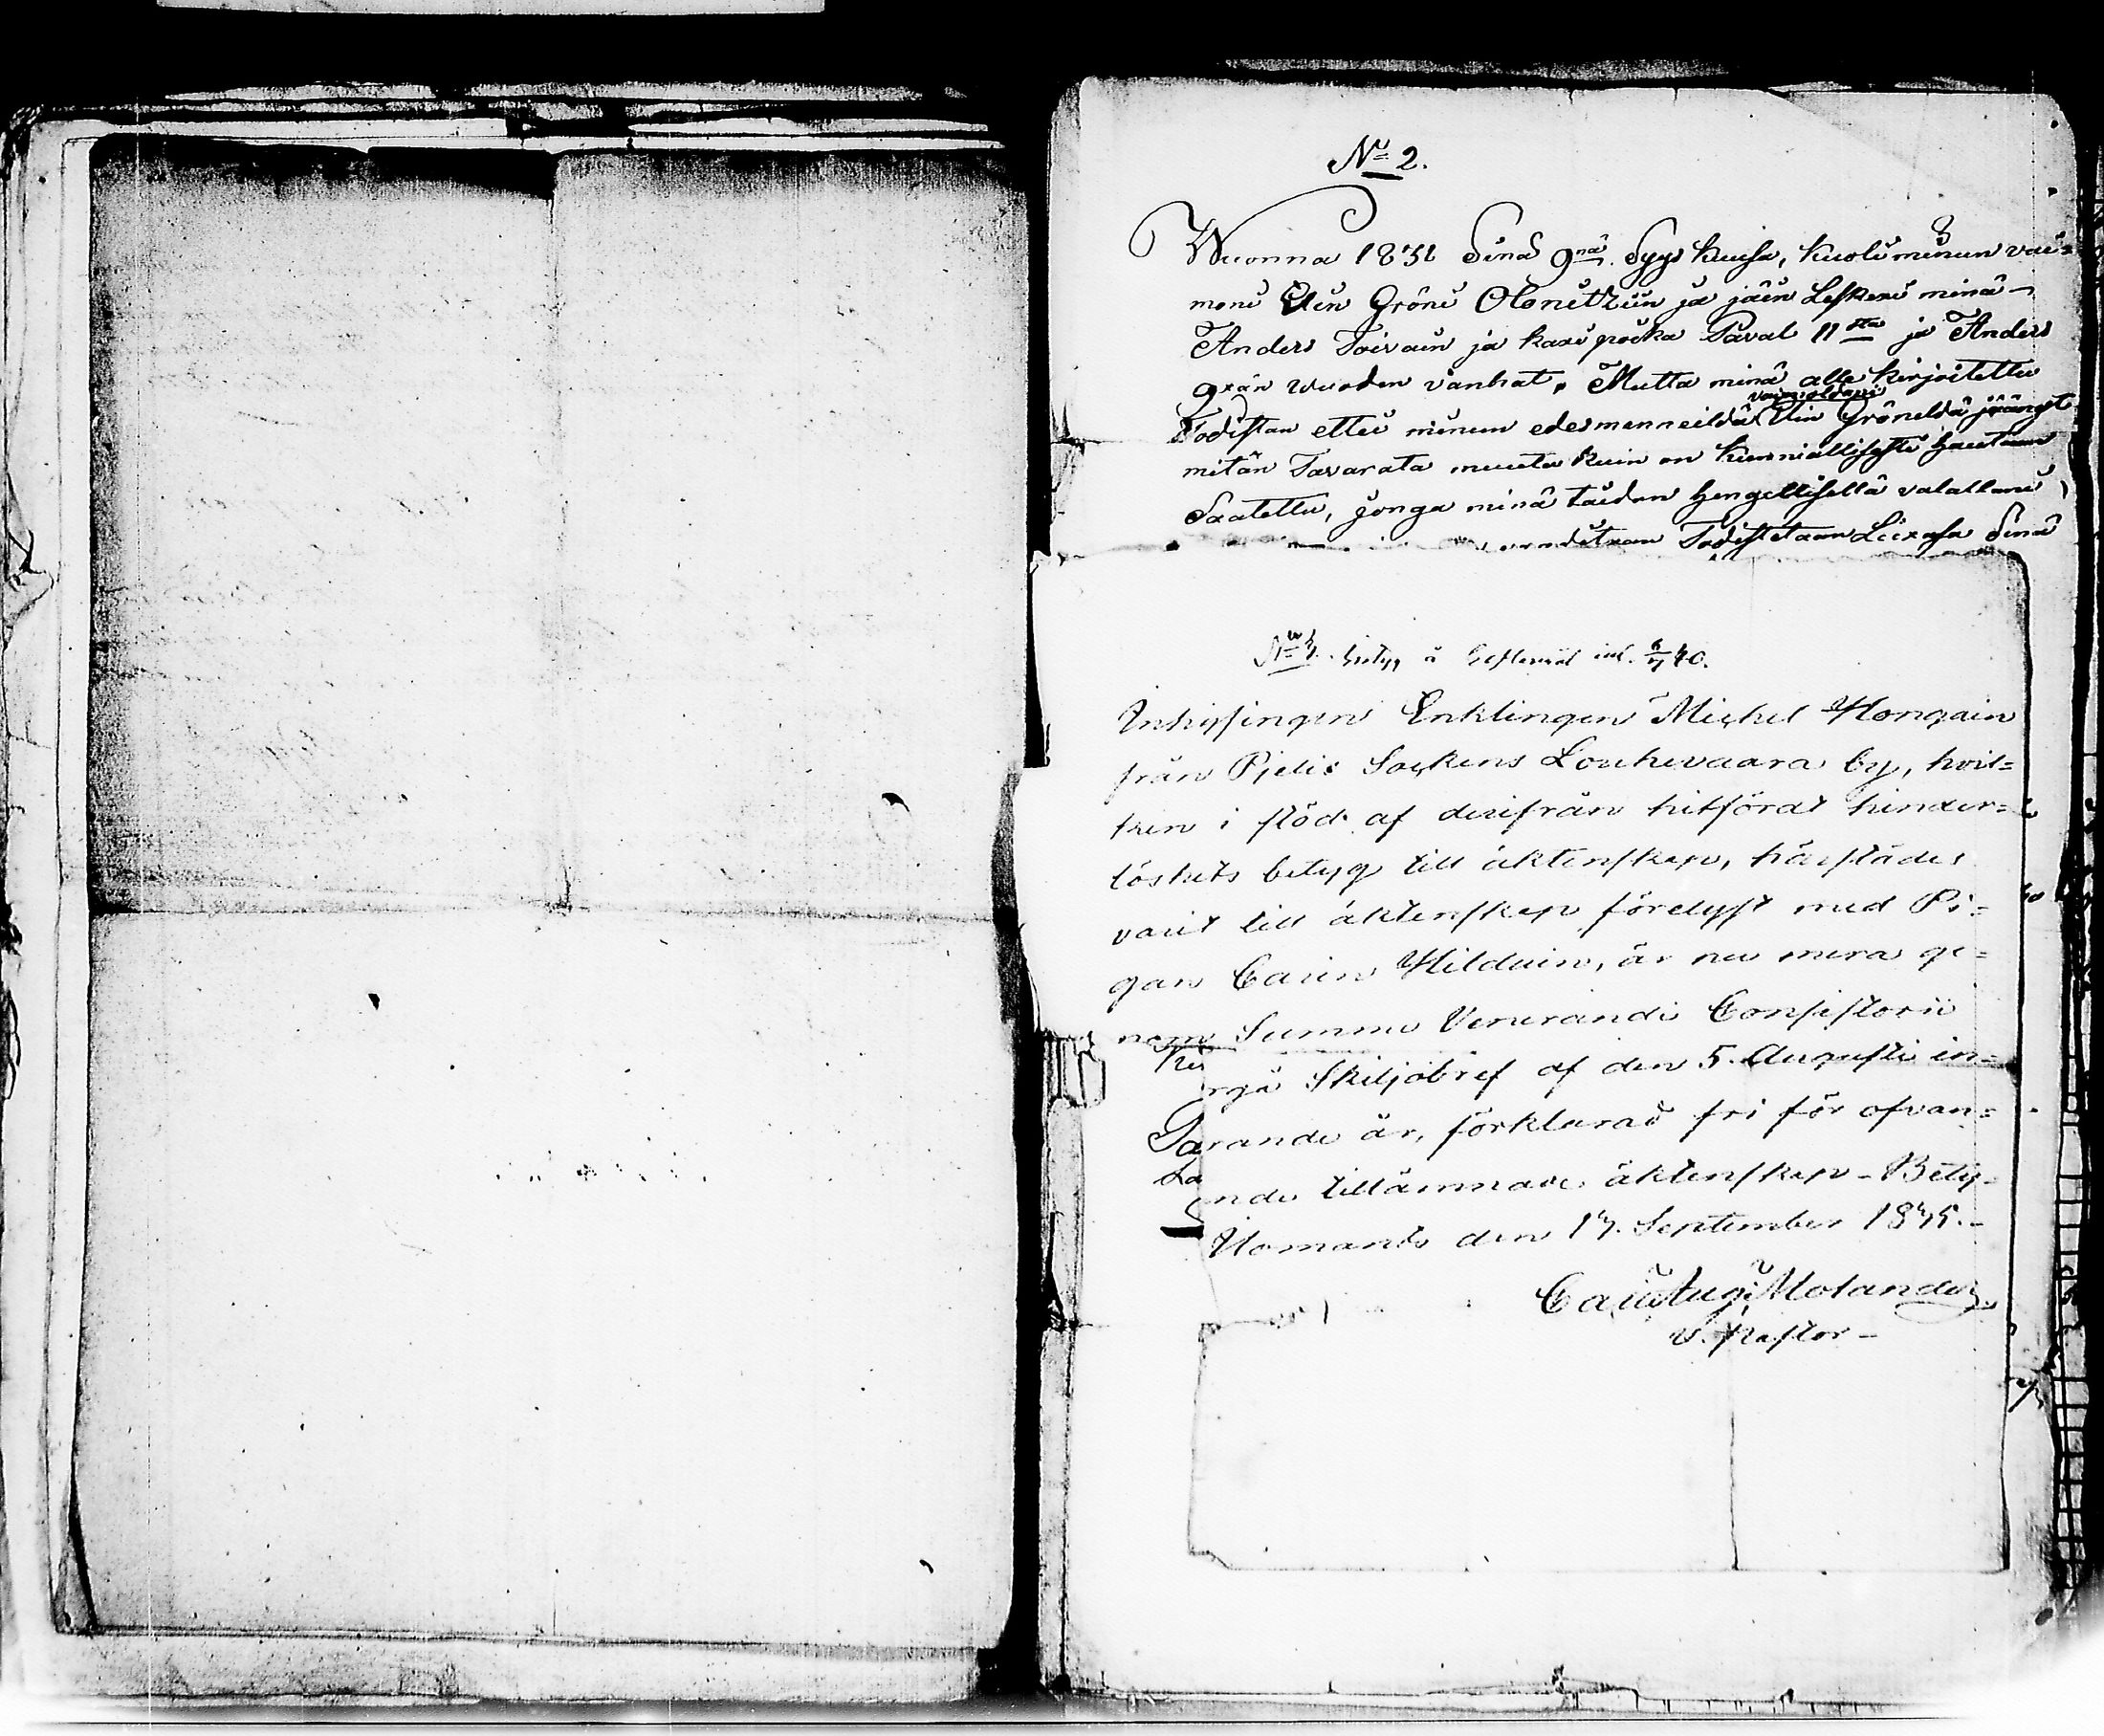 No 2.
Wuonna 1831 Sinä 9nä Syys kuusa, kuoli minun vai=
moni Elin Gröni Olonetziin ja jäin Leskexi minä
Anders Toivain ja kaxi poika Påval 11sta ja Anders
9xän wuoden vanhat, Mutta minä alle kirjoitettu
Todistan ettei minun edesmenneildä vaimoldani Elin Gröneldä jäängt
mitän Tavarata muuta kuin on kunniallisesti hautaan
Saatettu, jonga minä taidan hengellisellä valallani,
Todistetaan Liexasa Sinä
No 3. betyg
Inhysingen Enklingen Michel Hongain
från Pjelis Sockens Louhevaara by, hvil=
ken i stöd af derifrån hitfördt hinder=
löshets betyg till äktenskap, härstädes
varit till äktenskap förelyst med Pi=
gan Carin Hilduin, är nu mera ge=
nom Summe Venerandi Consistorii
rgå Skiljobref af den 5. Augusti in=
rande år, förklarad fri för ofvan=
nde tillämnade äktenskap - Bety-
Ilomants den 17. September 1835.
Molander
v. Pastor